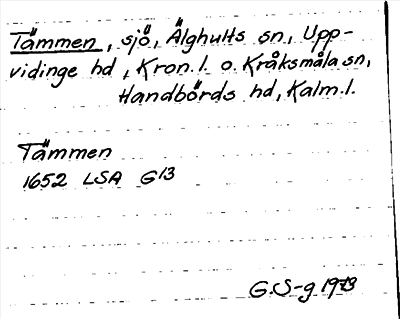 Tämmen, sjö, Älghults sn, Upp-
vidinge hd, Kron. l. o. Kråksmåla sn,
Handbörds hd, Kalm. l.
Tämmen
1652 LSA G13
G.S-g 1973